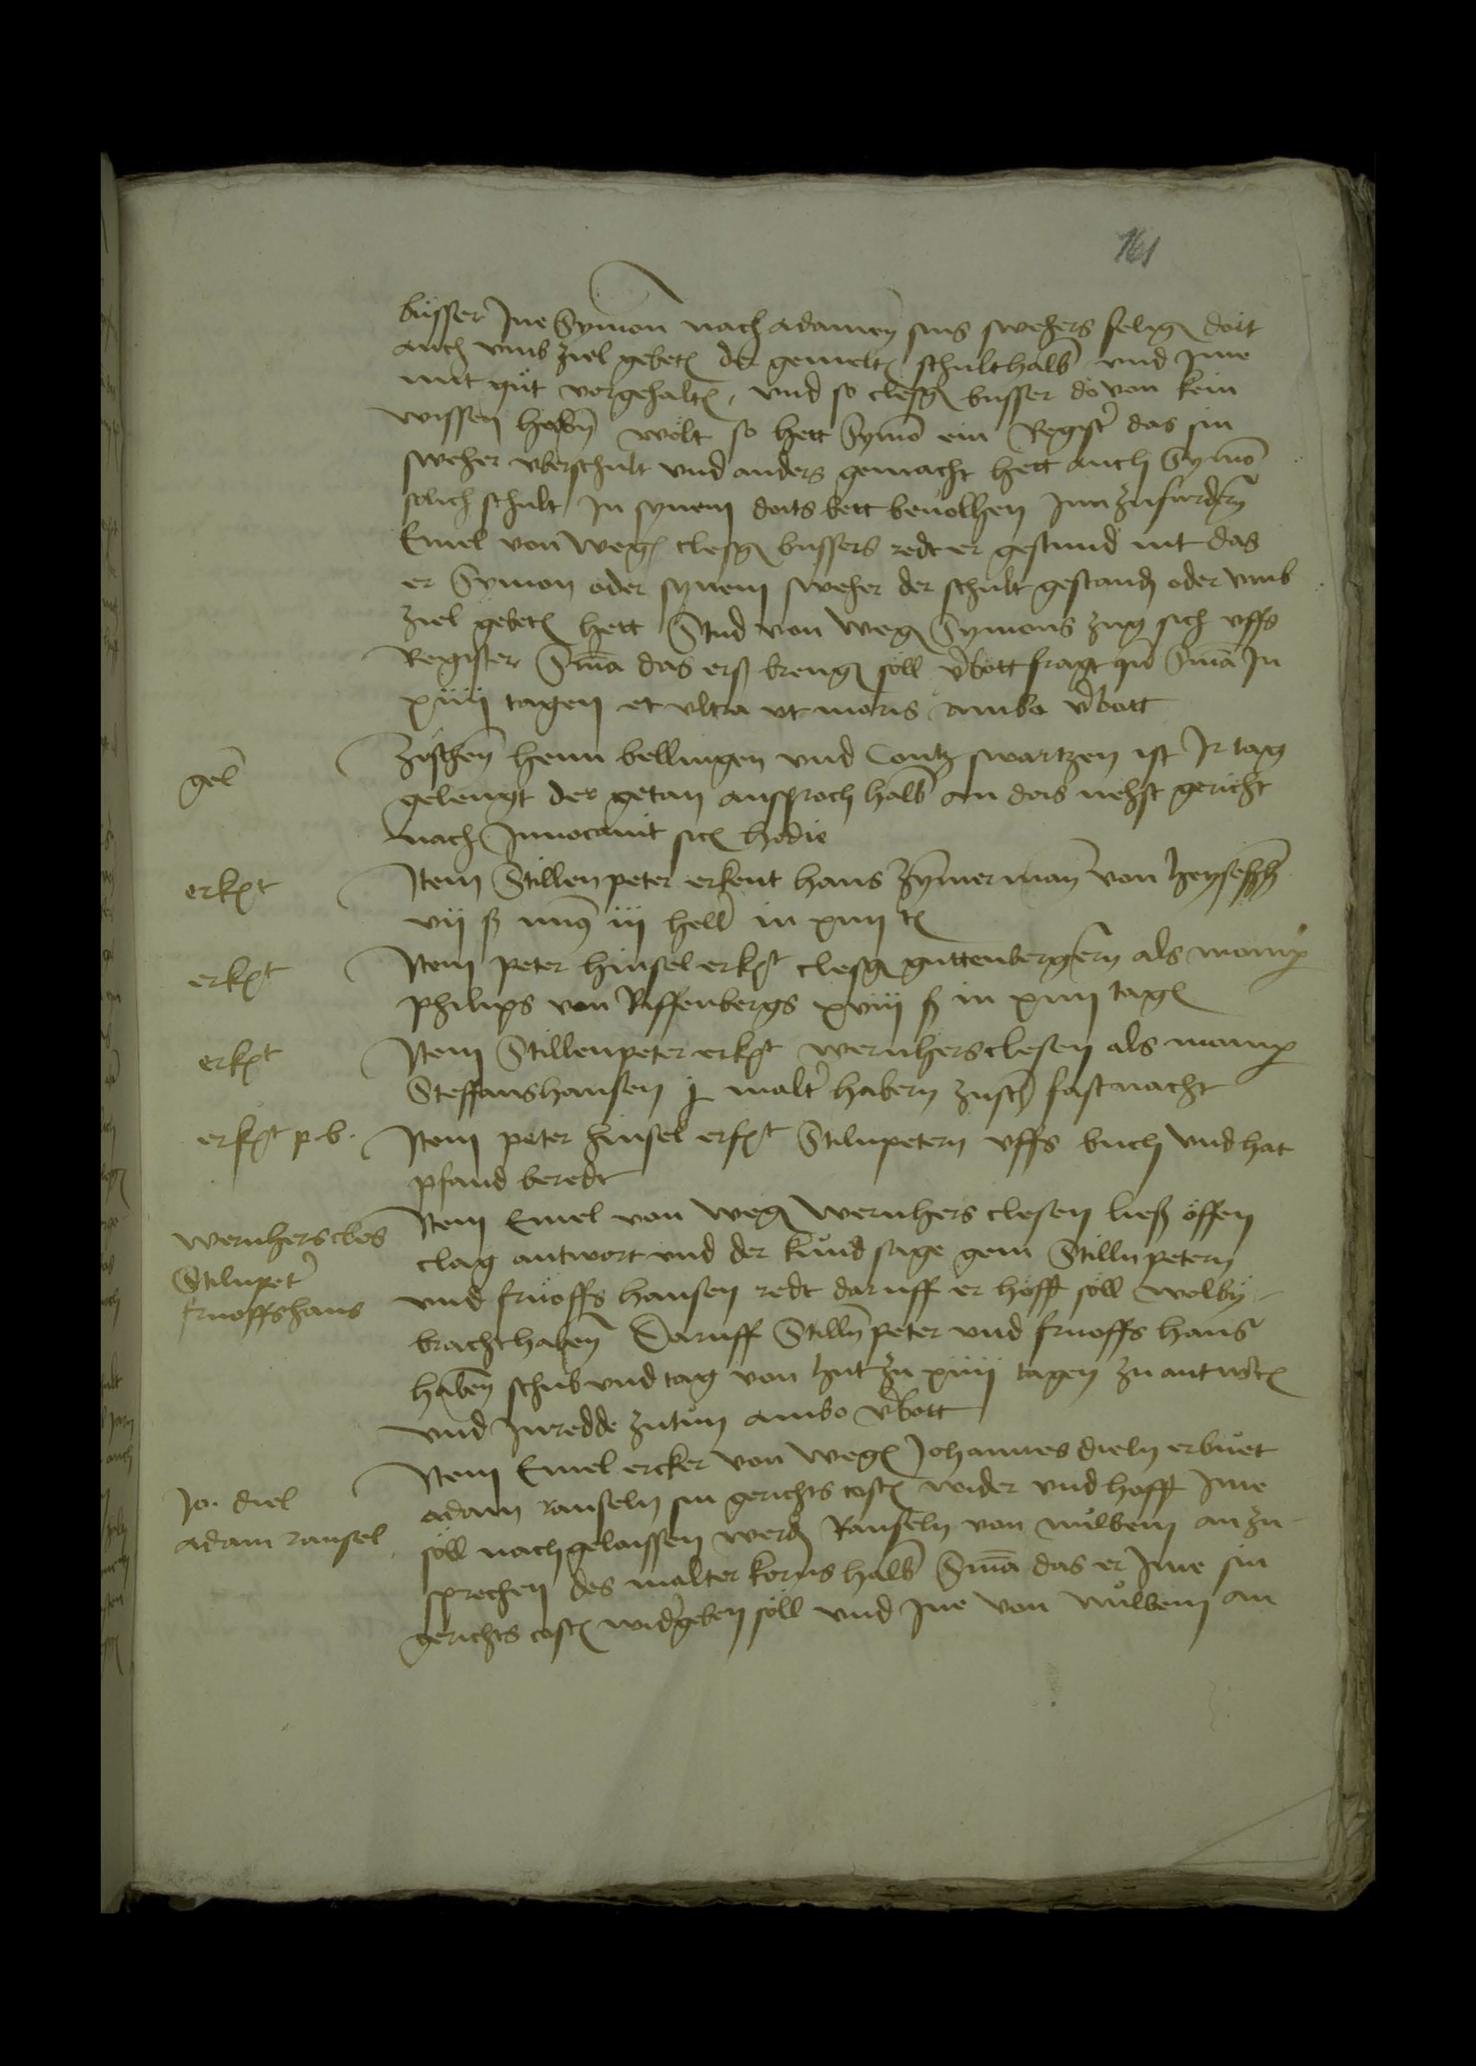 161
busser Jne Symon nach adamen sins swehers selig doit
auch vmb ziel gebet der gemelt schulthalb vnd Jme
nit gut vorgehalt, vnd so clesg busser do von kein
wissen haben wolt so hett Symo ein Regist das sin
sweher vberschult vnd anders gemacht hett auch Symo
solich schult Jn synem doits bett beuolhen Jnn zufurdern
Emel von weg clesg bussers redt er gestund nit das
er Symon oder synem sweher der schult gestand oder vmb
ziel gebet hett Stud von weg Symons zug sich vffs
Register Sma das erß breng soll vbott fragt qn Sma Jn
xiiii tagen et vltra vt moris ambo vbott
gel
Zuschen henn bellingen vnd Contz swartzen ist Jr tag
gelengt der getan ansproch halb an das nehst gericht
nach Jnuocauit sic hodie
erkēt
Jtem Stillen peter erkent hans Zymerman von heyseßh
vii ß mn9 iii hell in xiiii t
erkēt
Jtem peter hinsel erkēt clesg guttenbergern als momp
philips von Riffenbergs xviii ß in xiiii tag
erkēt
Jtem Stillenpeter erkēt wernhersclesen als momp
Steffanshansen j malt habern zusch fastnacht
erkēt p b.
Jtem peter hinsel erkēt Stilnpetern vffs buch vnd hat
pfand beredt
wernhers cles
Stilnpet
fruoffshans
Jtem Emel von weg wernhers clesen ließ offen
clag antwort vnd der kund sage gein Stilln petern
vnd fruoffs hansen redt daruff er hofft soll wolby
bracht haben Daruff Stilln peter vnd fruoffs hans
haben schub vnd tag von hut zu xiiii tagen zu antwt
vnd Jnredde zutun ambo vbott
Jo. diel
adam ransel
Jtem Emel ercker von weg Johannes dieln erbuet
adam ranseln sin gerichts cost wider vnd hofft Jme
soll nachgelaissen werd Ranseln von nuwem an zu
sprechen des malter korns halb Sma das er Jme sin
gerichts cost widgeben soll vnd Jne von nuwem an